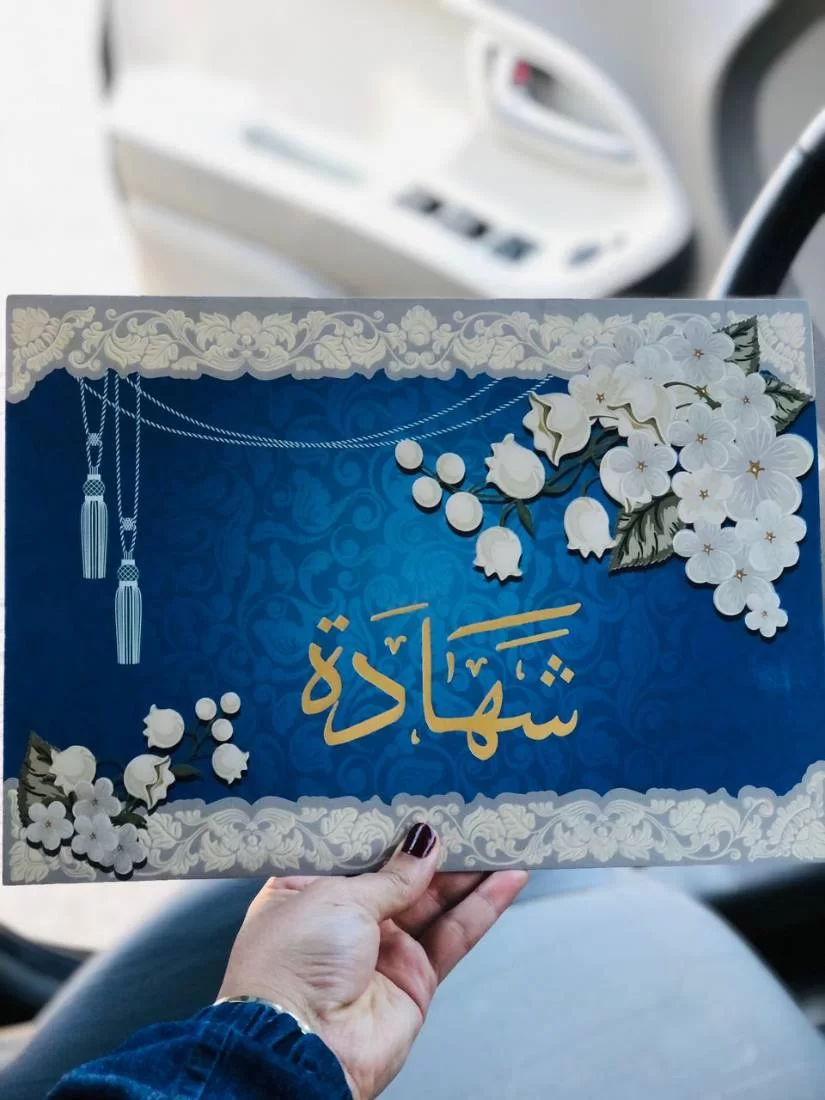 شهادة